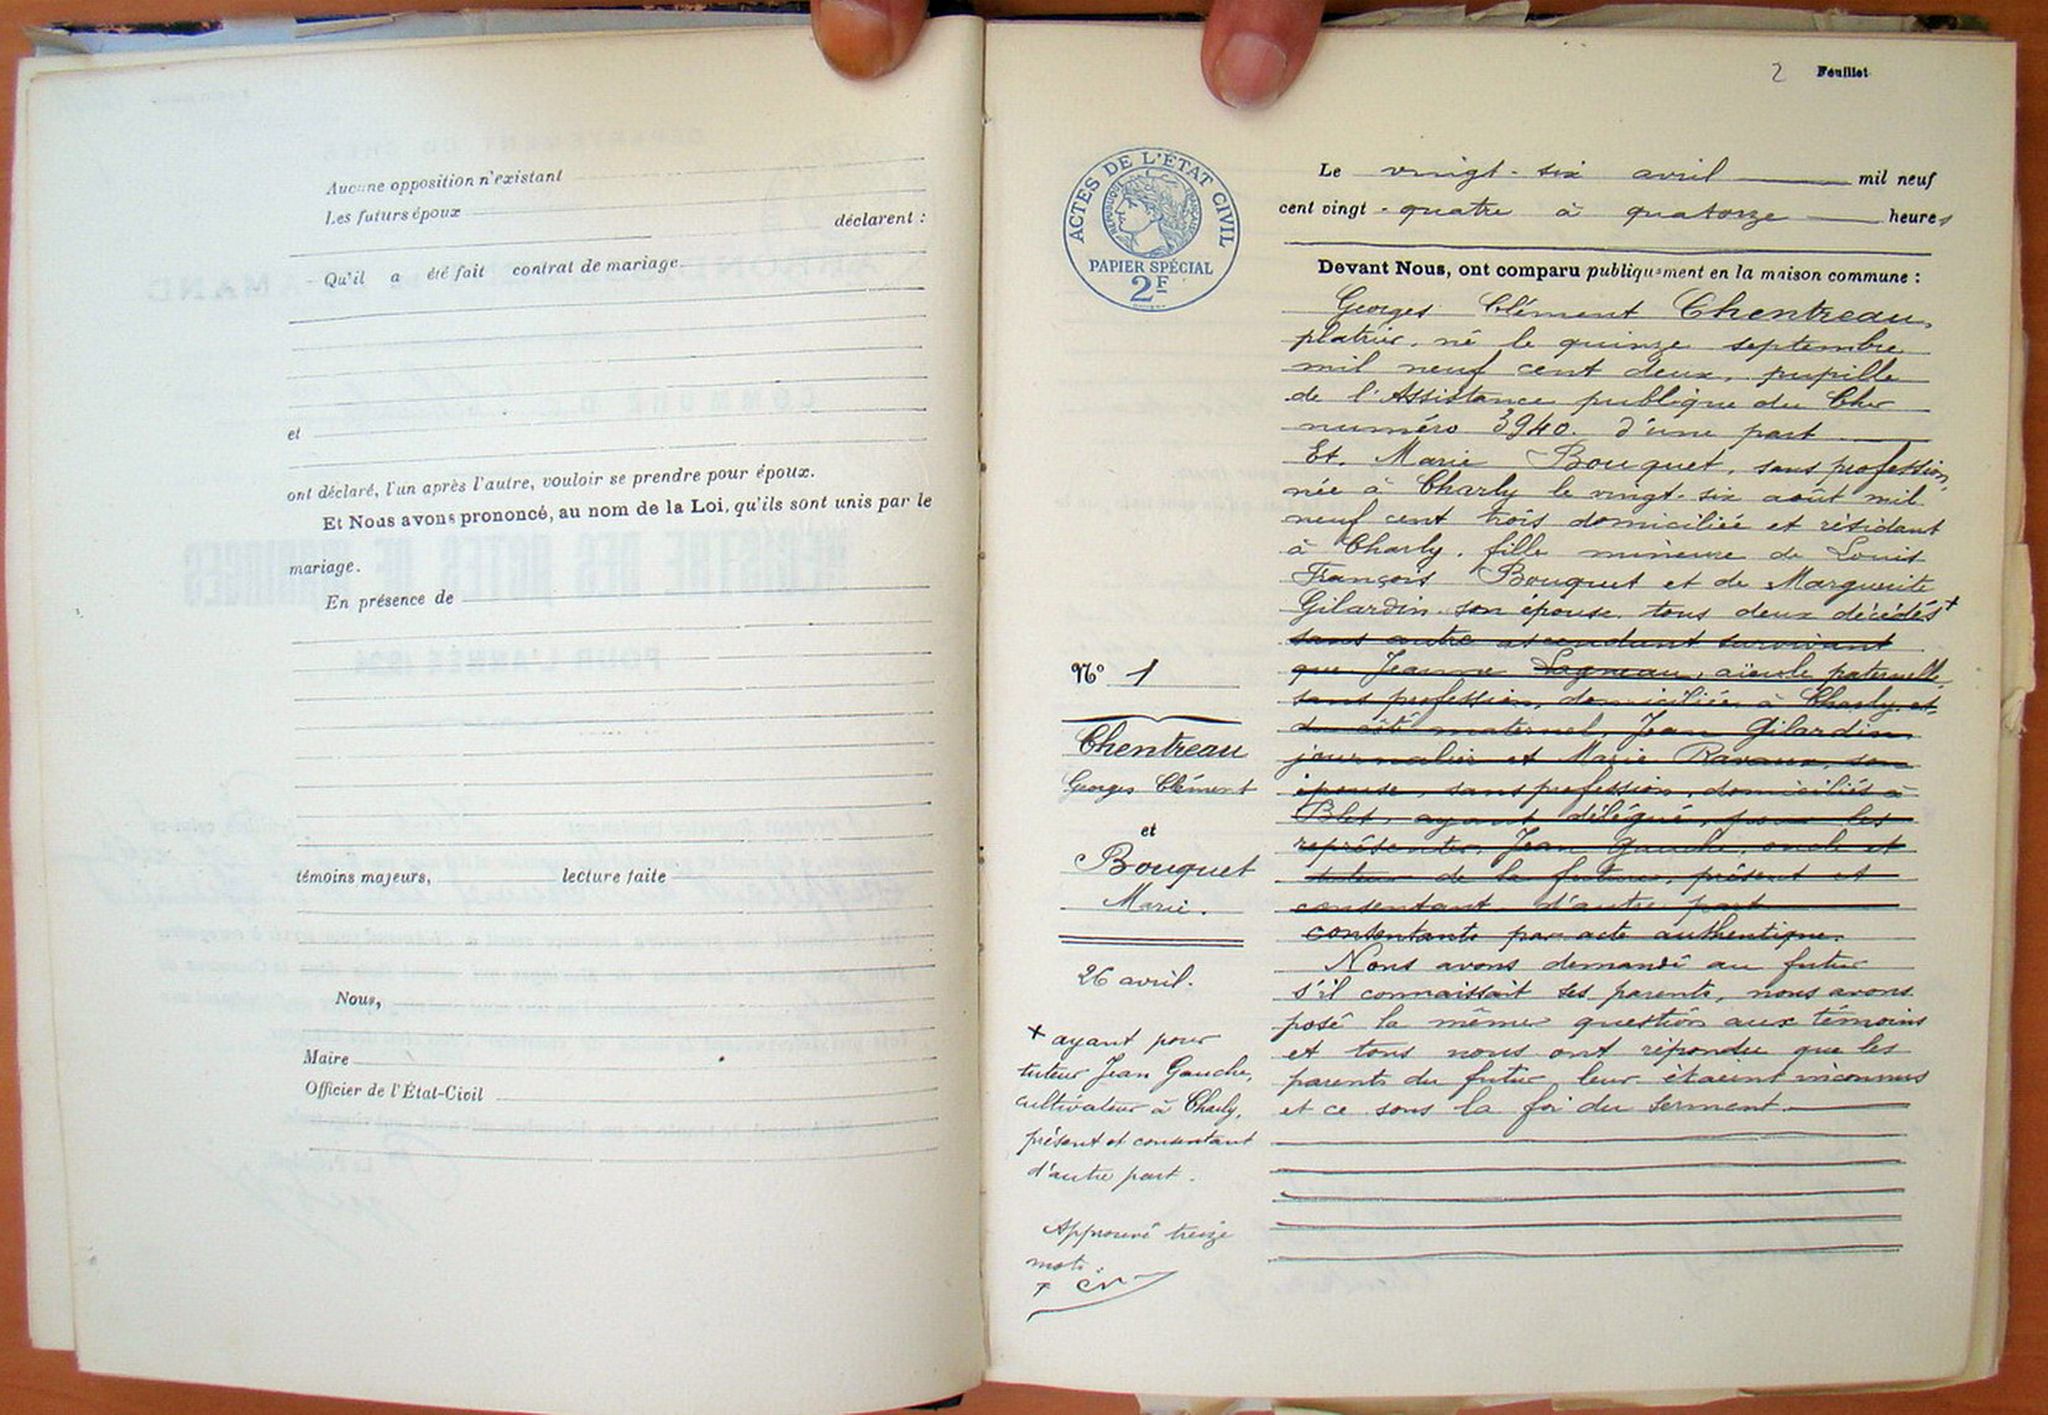 Aucune opposition n'existant
Les futurs époux déclarent :
Qu'il a été fait contrat de mariage
et
ont déclaré, l'un après l'autre, vouloir se prendre pour époux.
Et Nous avons prononcé, au nom de la Loi, qu'ils sont unis par le
mariage.
En présence de
témoins majeurs, lecture faite
Nous,
Maire
Officier de l'État-Civil
2 Feuillet
ACTES DE L'ÉTAT CIVIL
RÉPUBLIQUE FRANÇAISE
PAPIER SPÉCIAL
2F
Le vingt-six avril mil neuf
cent vingt-quatre à quatorze heures
Devant Nous, ont comparu publiquement en la maison commune :
Georges Clément Chentreau,
platrier, né le quinze septembre
mil neuf cent deux, pupille
de l'Assistance publique du Cher
numéro 3940. d'une part
Et, Marie Bouquet, sans profession,
née à Charly le vingt-six août mil
neuf cent trois domiciliée et résidant
à Charly, fille mineure de Louis
François Bouquet et de Marguerite
Gilardin son épouse tous deux décédés +
sans autre ascendant survivant
que Jeanne Lagneau, aïeule paternelle,
sans profession, domiciliée à Charly, et,
du côté maternel, Jean Gilardin,
journalier et Marie Ravaux, son
épouse, sans profession, domiciliés à
Blet, ayant délégué, pour les
représenter, Jean Gauche, oncle et
tuteur de la future, présent et
consentant d'autre part
consentants par acte authentique.
Nous avons demandé au futur
s'il connaissait ses parents, nous avons
posé la même question aux témoins
et tous nous ont répondu que les
parents du futur leur étaient inconnus
et ce sous la foi du serment.
N° 1
Chentreau
Georges Clément
et
Bouquet
Marie.
26 avril.
+ ayant pour
tuteur Jean Gauche,
cultivateur à Charly,
présent et consentant
d'autre part.
Approuvé treize
mots.